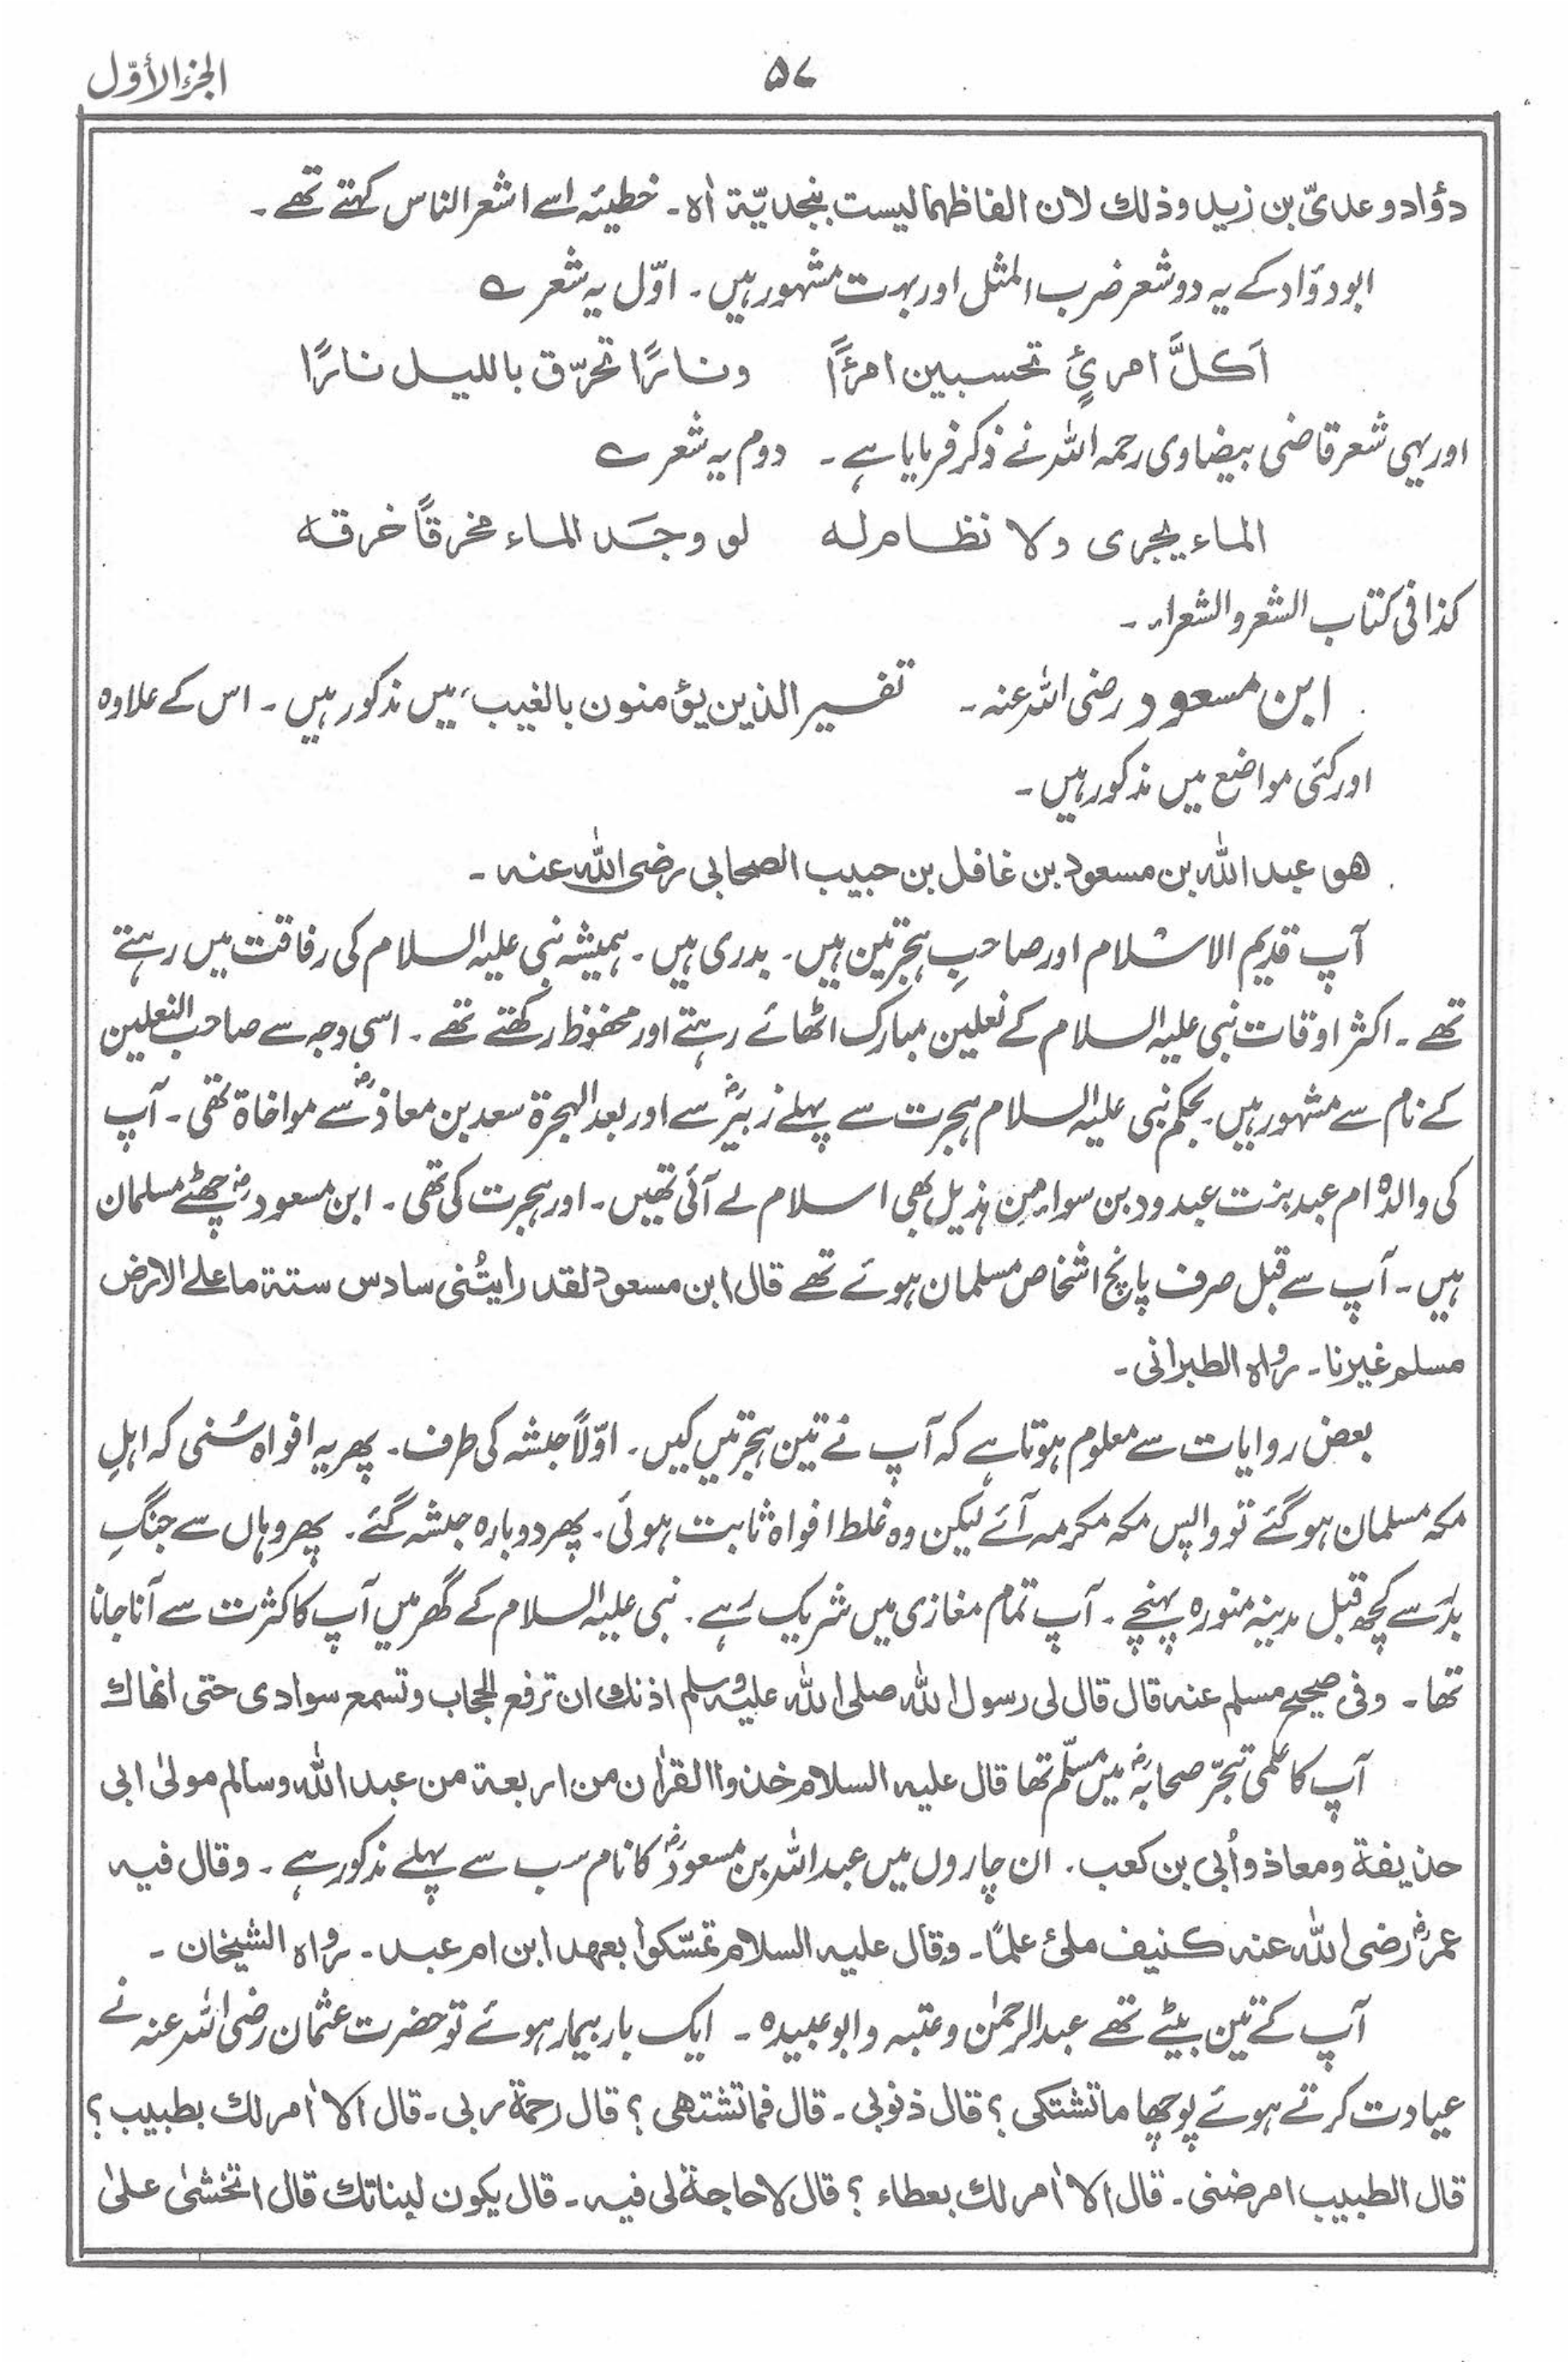 الجزء الأوّل
۵۷
دؤاد وعدىّ بن زيد وذلك لان الفاظهما ليست بنجديّة اٰه۔ خطیئہ اسے اشعر الناس کہتے تھے۔
ابو دؤاد کے یہ دو شعر ضرب المثل اور بہت مشہور ہیں۔ اوّل یہ شعر ے
اَكلَّ امرئٍ تحسبين امرءًا ونارًا تحرّق بالليل نارًا
اور یہی شعر قاضی بیضاوی رحمہ اللہ نے ذکر فرمایا ہے۔ دوم یہ شعر ے
الماء يجرى ولا نظام له لو وجَد الماء مخرقًا خرقه
کذا فی کتاب الشعر والشعراء۔
ابن مسعود رضی اللہ عنہ۔ تفسیر الذین یؤمنون بالغیب، میں مذکور ہیں۔ اس کے علاوہ
اور کئی مواضع میں مذکور ہیں۔
هو عبد الله بن مسعود بن غافل بن حبيب الصحابی رضی الله عنه۔
آپ قدیم الاسلام اور صاحبِ ہجرتین ہیں۔ بدری ہیں۔ ہمیشہ نبی علیہ السلام کی رفاقت میں رہتے
تھے۔ اکثر اوقات نبی علیہ السلام کے نعلین مبارک اٹھائے رہتے اور محفوظ رکھتے تھے۔ اسی وجہ سے صاحب النعلین
کے نام سے مشہور ہیں۔ بحکم نبی علیہ السلام ہجرت سے پہلے زبیرؓ سے اور بعد الہجرۃ سعد بن معاذؓ سے مواخاۃ تھی۔ آپ
کی والدہ ام عبد بنت عبد ود بن سواء من ہذیل بھی اسلام لے آئی تھیں۔ اور ہجرت کی تھی۔ ابن مسعودؓ چھٹے مسلمان
ہیں۔ آپ سے قبل صرف پانچ اشخاص مسلمان ہوئے تھے قال ابن مسعود لقد رايتُنی سادس ستة ما علے الارض
مسلم غیرنا۔ رواه الطبرانی۔
بعض روایات سے معلوم ہوتا ہے کہ آپ نے تین ہجرتیں کیں۔ اوّلاً حبشہ کی طرف۔ پھر یہ افواہ سُنی کہ اہلِ
مکہ مسلمان ہو گئے تو واپس مکہ مکرمہ آئے لیکن وہ غلط افواہ ثابت ہوئی۔ پھر دوبارہ حبشہ گئے۔ پھر وہاں سے جنگِ
بدر سے کچھ قبل مدینہ منورہ پہنچے۔ آپ تمام مغازی میں شریک رہے۔ نبی علیہ السلام کے گھر میں آپ کا کثرت سے آنا جانا
تھا۔ وفی صحیح مسلم عنه قال قال لی رسول الله صلی الله علیه وسلم اذنك ان ترفع الحجاب وتسمع سوادی حتی انهاك
آپ کا علمی تبحّر صحابہؓ میں مسلّم تھا قال علیه السلام خذوا القراٰن من اربعة من عبد الله وسالم مولیٰ ابی
حذیفة ومعاذ واُبی بن کعب۔ ان چاروں میں عبد اللہ بن مسعودؓ کا نام سب سے پہلے مذکور ہے۔ وقال فیه
عمرؓ رضی الله عنه كنيف ملئ علمًا۔ وقال علیه السلام تمسّكوا بعهد ابن ام عبد۔ رواه الشیخان۔
آپ کے تین بیٹے تھے عبد الرحمٰن وعتبہ وابو عبیدہ۔ ایک بار بیمار ہوئے تو حضرت عثمان رضی اللہ عنہ نے
عیادت کرتے ہوئے پوچھا ما تشتكی؟ قال ذنوبی۔ قال فما تشتهی؟ قال رحمة ربی۔ قال الا اٰمر لك بطبیب؟
قال الطبیب امرضنی۔ قال الا اٰمر لك بعطاء؟ قال لا حاجة لی فیه۔ قال یکون لبناتك قال اتخشیٰ علیٰ